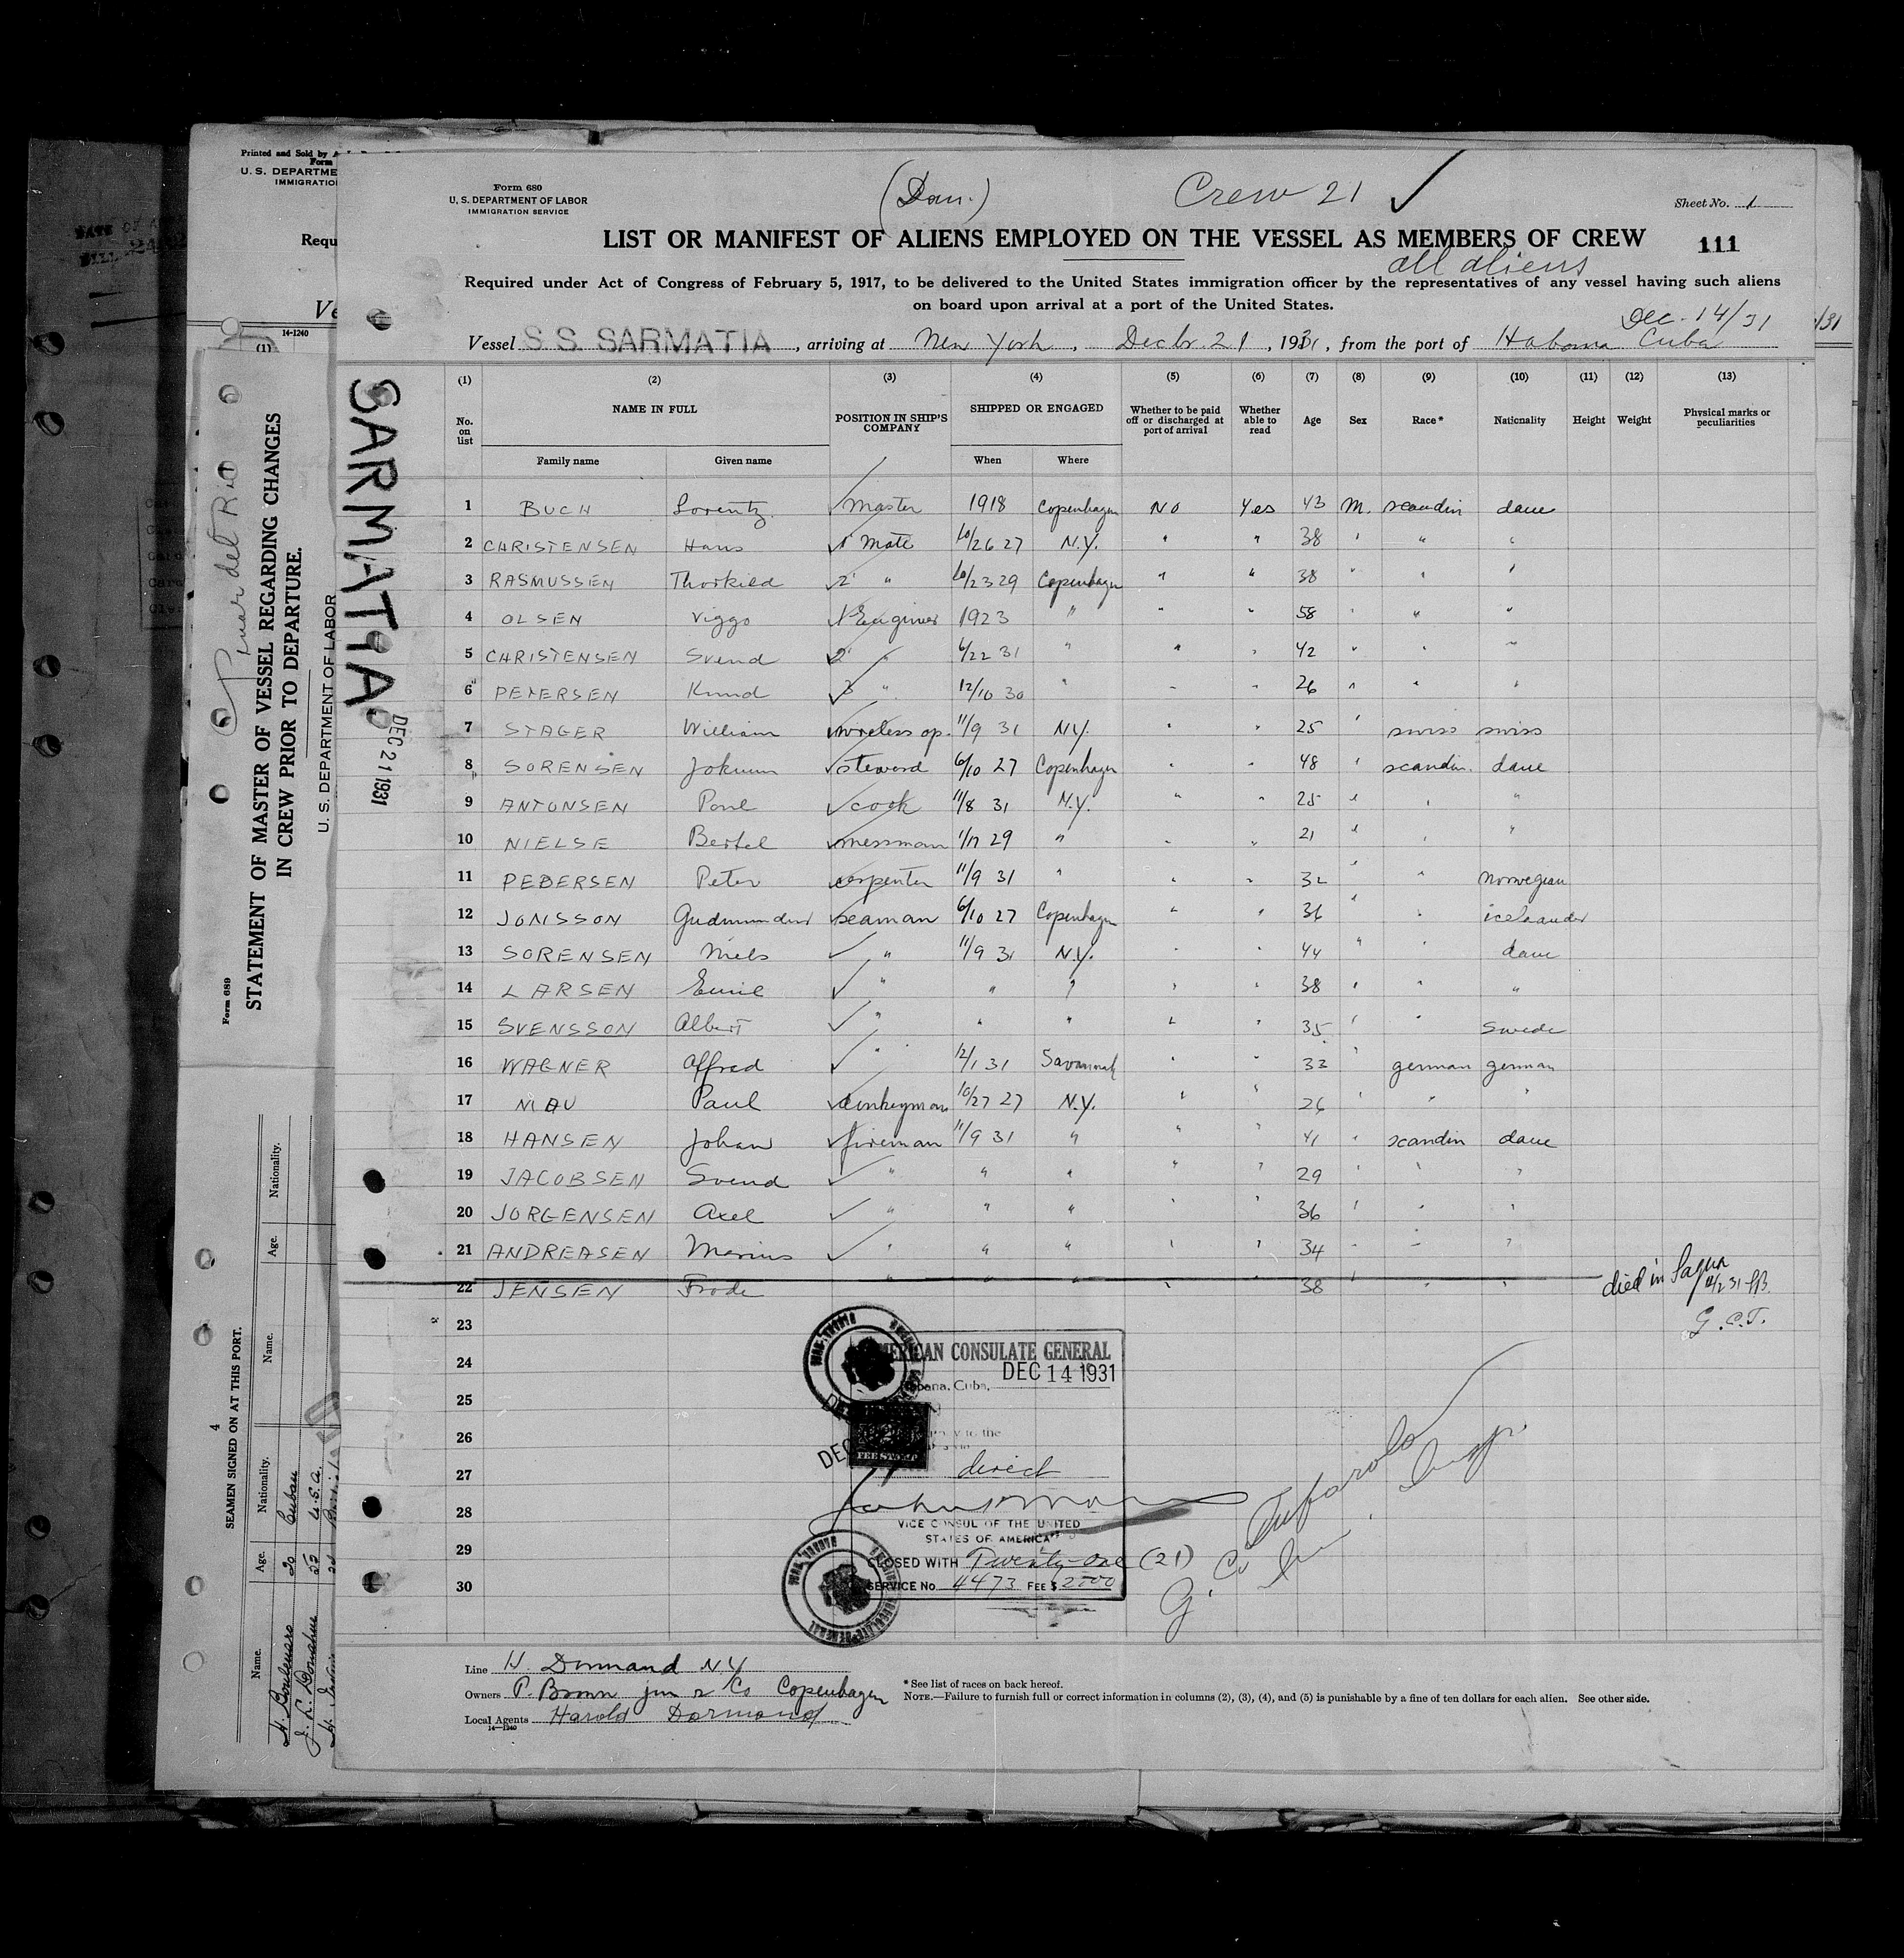 Printed and Sold by
Form
U. S. DEPARTME
IMMIGRATIO
Requ
Ve
14-1240
(1)
Pinar del Rio
Form 689
STATEMENT OF MASTER OF VESSEL REGARDING CHANGES
IN CREW PRIOR TO DEPARTURE.
U. S. DEPARTMENT OF LABOR
4
SEAMEN SIGNED ON AT THIS PORT.
Name. Age. Nationality. Name. Age. Nationality.
20 Cuban
U.S.A.
SARMATIA
DEC 21 1931
Form 680
U. S. DEPARTMENT OF LABOR
IMMIGRATION SERVICE
(Dan.)
Crew 21 ✓
Sheet No. 1
LIST OR MANIFEST OF ALIENS EMPLOYED ON THE VESSEL AS MEMBERS OF CREW
111
all aliens
Required under Act of Congress of February 5, 1917, to be delivered to the United States immigration officer by the representatives of any vessel having such aliens
on board upon arrival at a port of the United States.
Dec. 14/31
Vessel S.S. SARMATIA, arriving at New York, Decbr. 21, 1931, from the port of Habana Cuba
(1) (2) (3) (4) (5) (6) (7) (8) (9) (10) (11) (12) (13)
No. on list NAME IN FULL POSITION IN SHIP'S COMPANY SHIPPED OR ENGAGED Whether to be paid off or discharged at port of arrival Whether able to read Age Sex Race* Nationality Height Weight Physical marks or peculiarities
Family name Given name When Where
1 BUCH Lorentz Master 1918 Copenhagen No Yes 43 M. scandin dane
2 CHRISTENSEN Hans 1 Mate 10/26 27 N.Y. " " 38 " " "
3 RASMUSSEN Thorkild 2 " 10/23 29 Copenhagen " " 38 " " "
4 OLSEN Viggo 1 Engineer 1923 " " " 58 " " "
5 CHRISTENSEN Svend 2 " 6/22 31 " " " 42 " " "
6 PETERSEN Knud 3 " 12/10 30 " " " 26 " " "
7 STAGER William wireless op. 11/9 31 N.Y. " " 25 " swiss swiss
8 SORENSEN Jokum steward 6/10 27 Copenhagen " " 48 " scandin. dane
9 ANTONSEN Poul cook 11/8 31 N.Y. " " 25 " " "
10 NIELSE Bertel messman 1/17 29 " " " 21 " " "
11 PEDERSEN Peter carpenter 11/9 31 " " " 32 " " norwegian
12 JONSSON Gudmundur seaman 6/10 27 Copenhagen " " 36 " " icelander
13 SORENSEN Niels " 11/9 31 N.Y. " " 44 " " dane
14 LARSEN Emil " " " " " 38 " " "
15 SVENSSON Albert " " " " " 35 " " Swede
16 WAGNER Alfred " 12/1 31 Savannah " " 33 " german german
17 Paul donkeyman 10/27 27 N.Y. " " 26 " " "
18 HANSEN Johan fireman 11/9 31 " " " 41 " scandin dane
19 JACOBSEN Svend " " " " " 29 " " "
20 JORGENSEN Axel " " " " " 36 " " "
21 ANDREASEN Marius " " " " " 34 " " "
22 JENSEN Frode " " " " " 38 " " " died in Sagua
G.C.T.
23
24
25
26
27
28
29
30
AMERICAN CONSULATE GENERAL
DEC 14 1931
Habana, Cuba,
direct
VICE CONSUL OF THE UNITED
STATES OF AMERICA
CLOSED WITH Twenty-one (21)
SERVICE No. 4473 FEE $ 2.00
Line H. Dormand NY
Owners P. Brown jun & Co Copenhagen
Local Agents Harold Dormand
14—1240
* See list of races on back hereof.
NOTE.—Failure to furnish full or correct information in columns (2), (3), (4), and (5) is punishable by a fine of ten dollars for each alien. See other side.